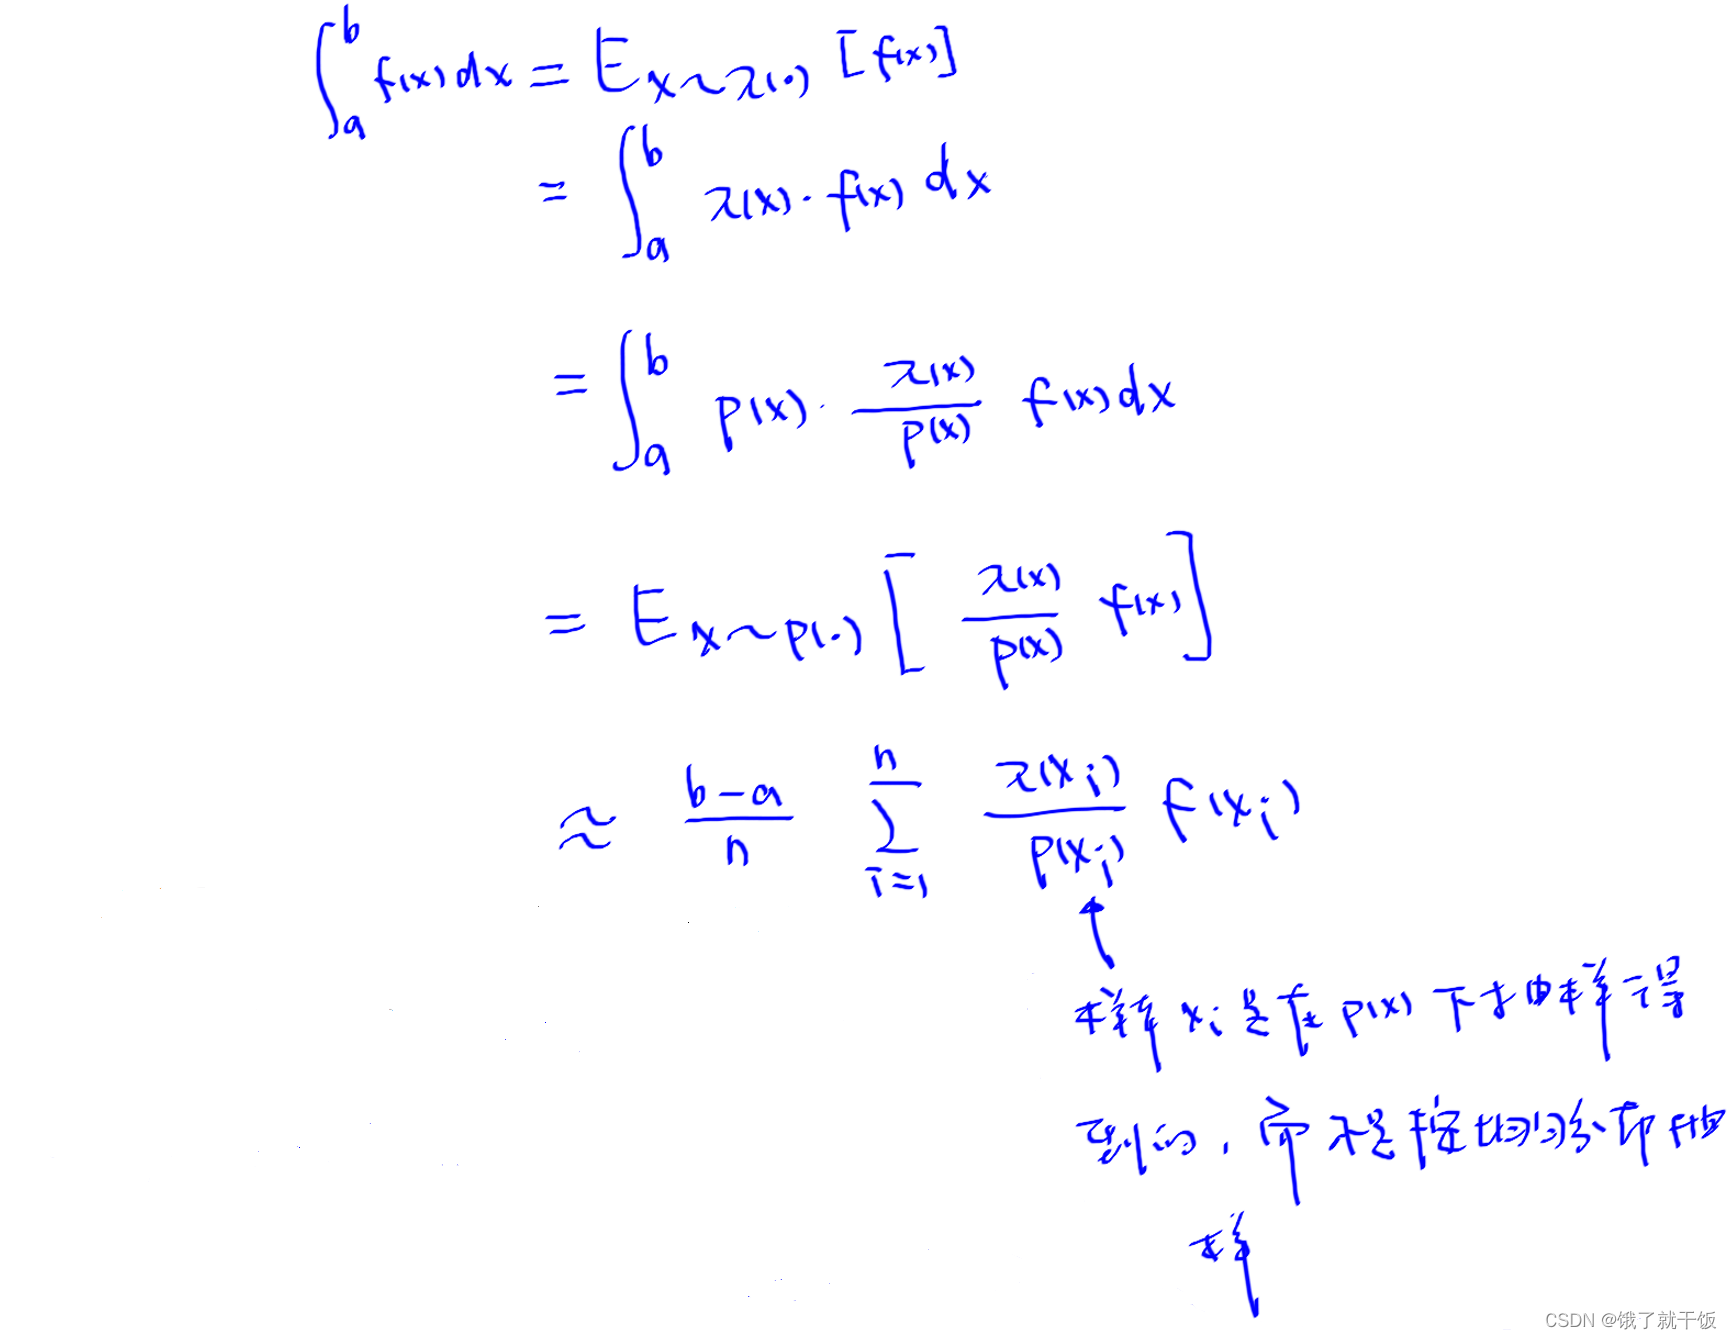 ∫_a^b f(x)dx = E_{x~π(·)} [f(x)]
= ∫_a^b π(x)·f(x)dx
= ∫_a^b p(x)· π(x)/p(x) f(x)dx
= E_{x~p(·)} [π(x)/p(x) f(x)]
≈ (b-a)/n ∑_{i=1}^n π(x_i)/p(x_i) f(x_i)
样本 x_i 是在 p(x) 下抽样得
到的, 而不是按均匀分布抽
样
CSDN @饿了就干饭